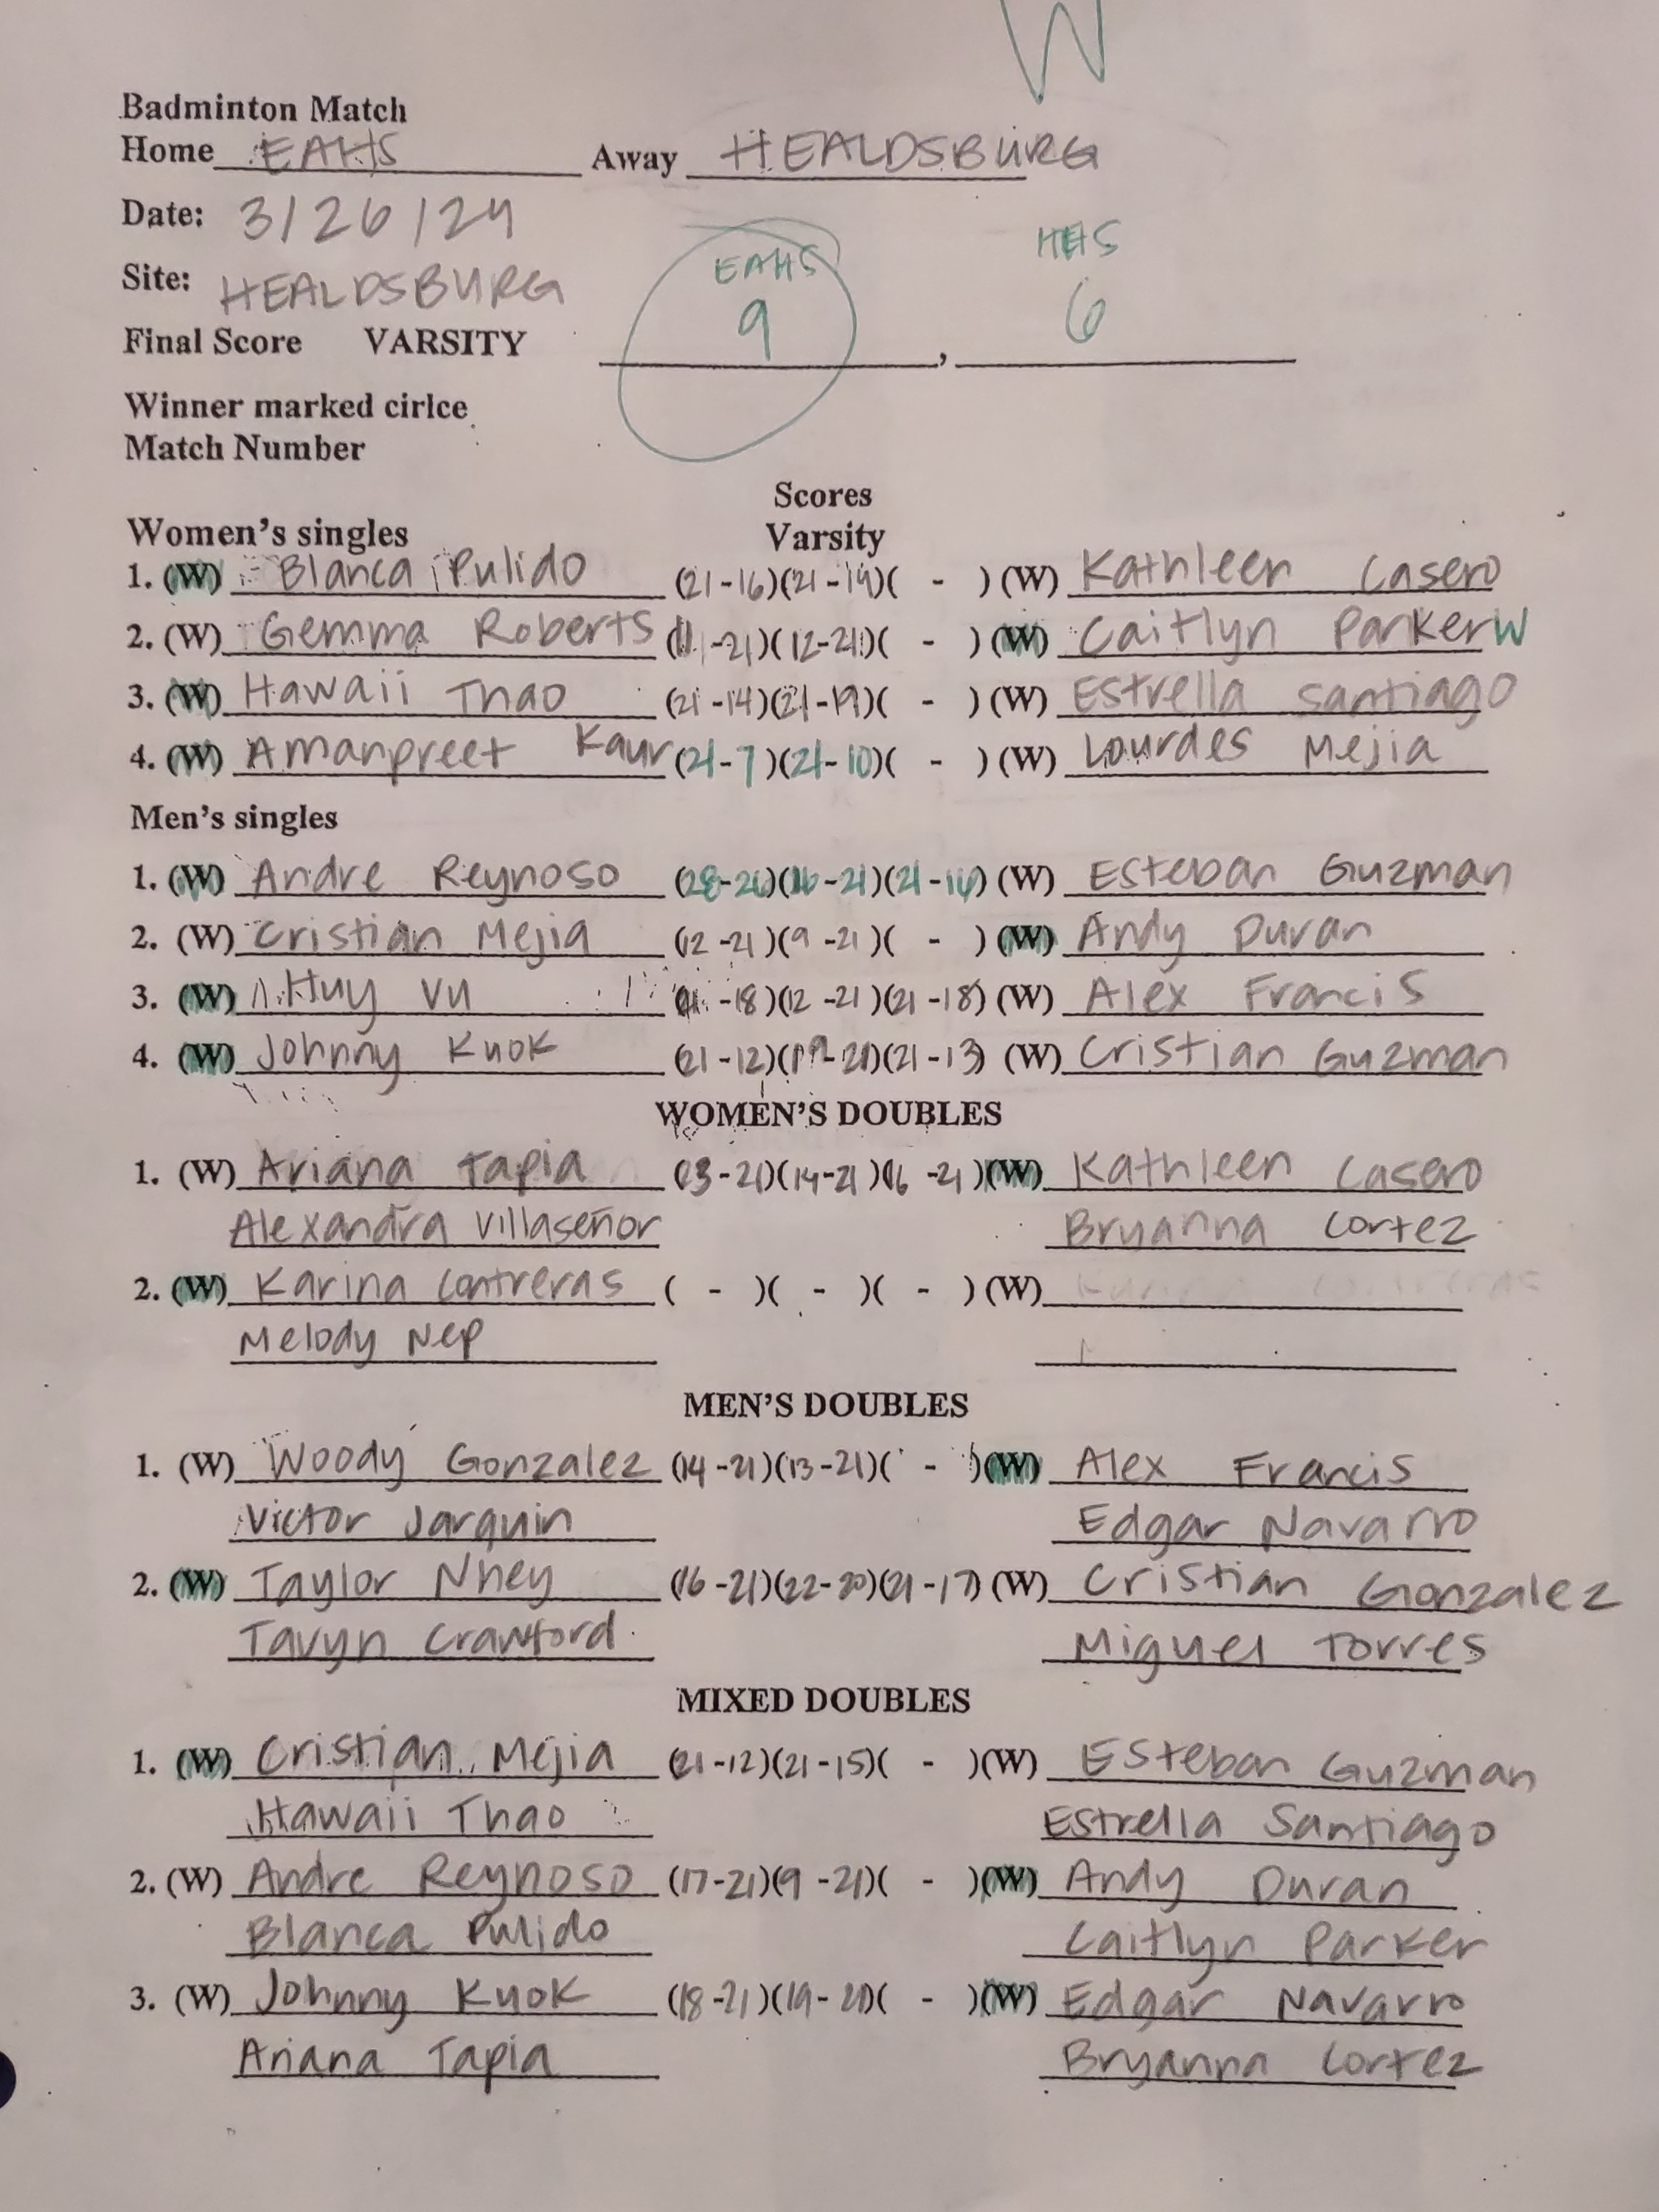 W
Badminton Match
Home EAHS Away HEALDSBURG
Date: 3/26/24
Site: HEALDSBURG
EAHS HHS
Final Score VARSITY 9 , 6
Winner marked cirlce
Match Number
Scores
Women's singles Varsity
1. (W) Blanca Pulido (21-16)(21-14)( - ) (W) Kathleen Casero
2. (W) Gemma Roberts (11-21)(12-21)( - ) (W) Caitlyn Parker W
3. (W) Hawaii Thao (21-14)(21-19)( - ) (W) Estrella Santiago
4. (W) Amanpreet Kaur (21-7)(21-10)( - ) (W) Lourdes Mejia
Men's singles
1. (W) Andre Reynoso (28-26)(16-21)(21-16) (W) Esteban Guzman
2. (W) Cristian Mejia (12-21)(9-21)( - ) (W) Andy Duran
3. (W) Huy Vu (21-18)(12-21)(21-18) (W) Alex Francis
4. (W) Johnny Kuok (21-12)(19-21)(21-13) (W) Cristian Guzman
WOMEN'S DOUBLES
1. (W) Ariana Tapia (23-21)(14-21)(16-21) (W) Kathleen Casero
Alexandra Villaseñor Bryanna Cortez
2. (W) Karina Contreras ( - )( - )( - ) (W)
Melody Nep
MEN'S DOUBLES
1. (W) Woody Gonzalez (14-21)(13-21)( - ) (W) Alex Francis
Victor Jarquin Edgar Navarro
2. (W) Taylor Nhey (16-21)(22-20)(21-17) (W) Cristian Gonzalez
Tavyn Crawford Miguel Torres
MIXED DOUBLES
1. (W) Cristian Mejia (21-12)(21-15)( - )(W) Esteban Guzman
Hawaii Thao Estrella Santiago
2. (W) Andre Reynoso (17-21)(9-21)( - )(W) Andy Duran
Blanca Pulido Caitlyn Parker
3. (W) Johnny Kuok (18-21)(19-21)( - )(W) Edgar Navarro
Ariana Tapia Bryanna Cortez